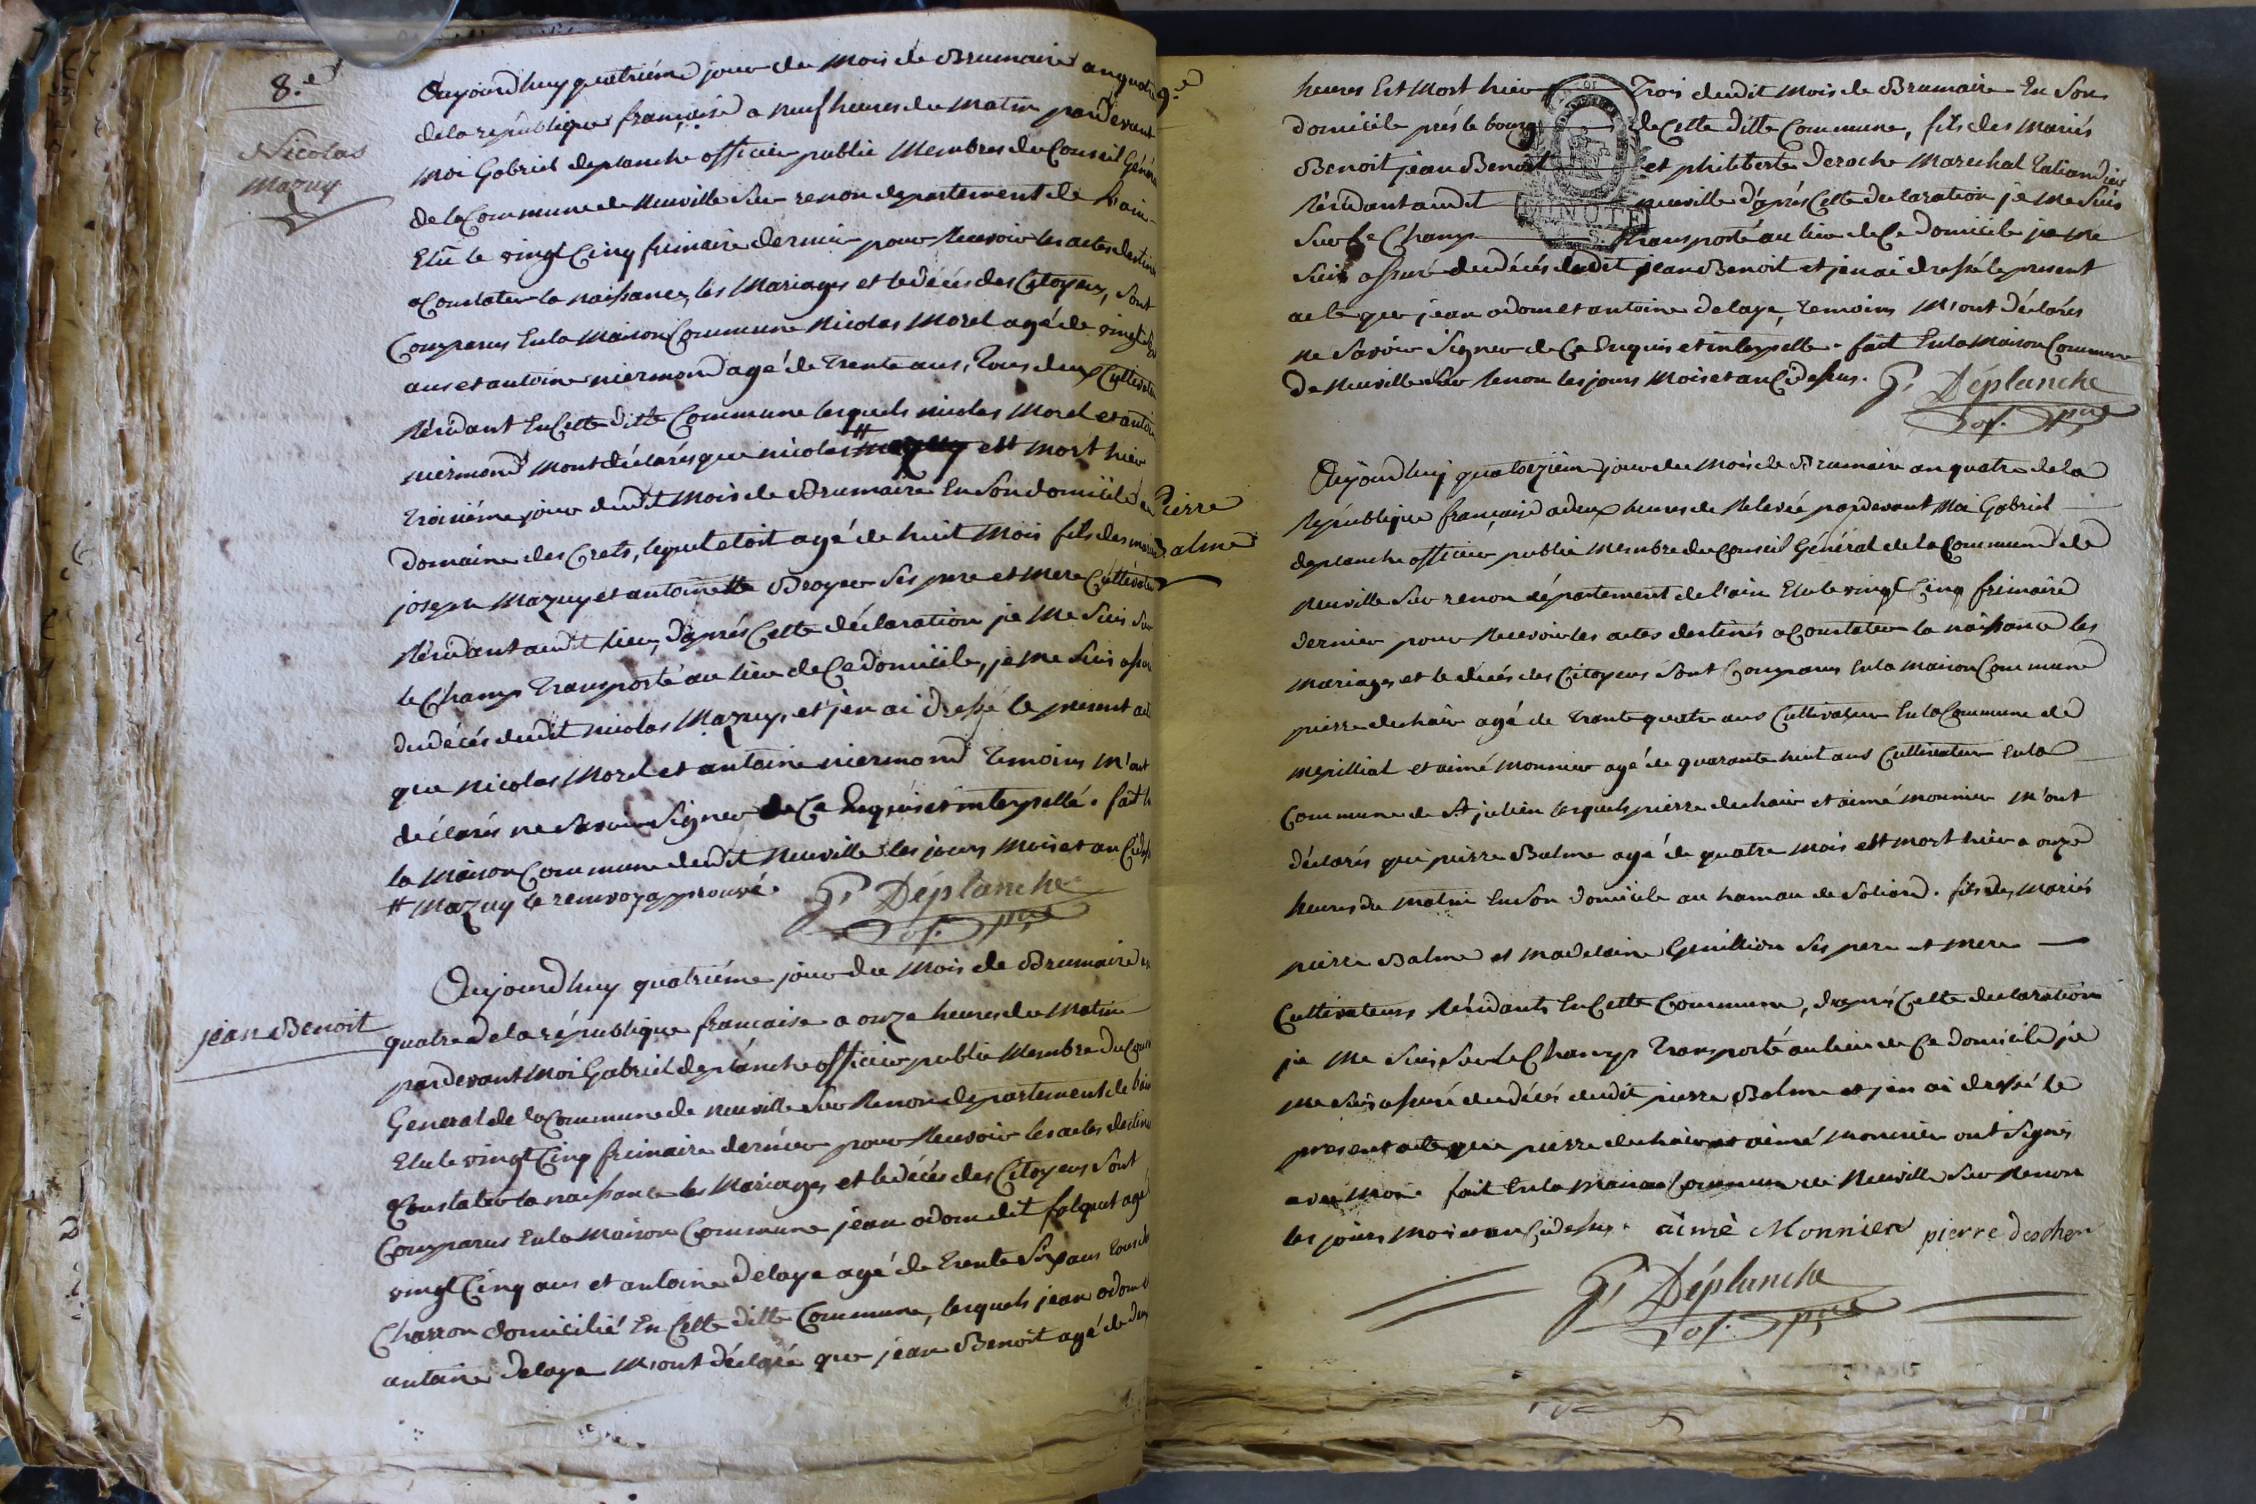 8.e
Nicolas
Mazuy
Aujourd'huy quatriéme jour du Mois de Brumaire an quatre
de la république française a neuf heures du matin pardevant
Moi Gabriel deplanche officier public Membres du Conseil Général
de la Commune de Neuville Sur renon département de L'ain
Elû le vingt Cinq frimaire dernier pour Recevoir les actes destinés
a Constater la naissance, les Mariages et le décés des Citoyens, Sont
Comparus En la Maison Commune Nicolas Morel agé de vingt
ans et antoine niermond agé de Trente ans, Tous deux Cultivateurs
Résidant En Cette ditte Commune lesquels nicolas Morel et antoine
niermond M'ont déclarés que nicolas # est Mort hier
troisiéme jour dudit Mois de Brumaire En Son domicile au
domaine des Crets, lequel etoit agé de huit Mois fils des mariés
joseph Mazuy et antoinette Broyer Ses pere et Mere Cultivateurs
Résidant audit lieu, d'aprés Cette déclaration je Me Suis Sur
le Champ Transporté au lieu de Ce domicile, je me Suis assuré
du décés dudit nicolas Mazuy, et j'en ai dressé le present acte
que Nicolas Morel et antoine niermond Temoins M'ont
déclarés ne Savoir Signer de Ce Enquis et interpellé. fait En
la Maison Commune dudit Neuville les jours Mois et an Cidessus
# Mazuy le renvoy approuvé. G. Déplanche
of. pue
jean Benoit
Aujourd'huy quatriéme jour du Mois de Brumaire an
quatre de la république française a onze heures du Matin
pardevant Moi Gabriel deplanche officier public Membre du Conseil
General de la Commune de Neuville Sur Renon département de l'ain
Elu le vingt Cinq frimaire dernier pour Recevoir les actes destinés
Constater la naissance les Mariages et le décés des Citoyens Sont
Comparus En la Maison Commune jean odom dit falquet agé
vingt Cinq ans et antoine delaye agé de Trente Six ans
Charron domicilié En Cette ditte Commune, lesquels jean odom et
antoine delaye M'ont déclaré que jean Benoit agé de
9.e
heures Est Mort hier Trois dudit Mois de Brumaire En Son
domicile prés le bourg de Cette ditte Commune, fils des Mariés
Benoit jean Benoit et philiberte Deroche Marechal Taliandier
Résidant audit neuville d'aprés Cette declaration je Me Suis
Sur Le Champ Transporté au lieu de Ce domicile je Me
Suis assuré du décés dudit jean Benoit et j'en ai dressé le present
acte que jean odom et antoine delaye, Temoins M'ont déclarés
ne Savoir Signer de Ce Enquis et interpellé. fait En la Maison Commune
de Neuville Sur Renon les jours Mois et an Cidessus. G. Déplanche
of. pue
MINUTE
Pierre
Balme
Aujourd'huy quatorzieme jour du Mois de Brumaire an quatre de la
République française a deux heures de Relevée pardevant Moi Gabriel
deplanche officier public Membre du Conseil Général de la Commune de
Neuville Sur renon département de l'ain Elu le vingt Cinq frimaire
dernier pour Recevoir les actes destinés a Constater la naissance les
Mariages et le décés des Citoyens Sont Comparus En la Maison Commune
pierre duchair agé de Trante quatre ans Cultivateur En la Commune de
Mepilliat et aimé Monnier agé de quarante huit ans Cultivateur En la
Commune de St julien lesquels pierre duchair et aimé monnier M'ont
déclarés que pierre Balme agé de quatre Mois est Mort hier a onze
heures du Matin En Son domicile au hamau de Soliard. fils des Mariés
pierre Balme et Madelaine Genillion Ses pere et Mere
Cultivateurs Résidants En Cette Commune, d'aprés Cette declaration
je Me Suis Sur Le Champ Transporté au lieu de Ce domicile je
Me Suis assuré du décés dudit pierre Balme et j'en ai dressé le
present acte que pierre duchair et aimé monnier ont Signés
avec Moi. fait En la Maison Commune de Neuville Sur Renon
les jours Mois et an Cidessus. aimé Monnier pierre descher
G. Déplanche
of. pue